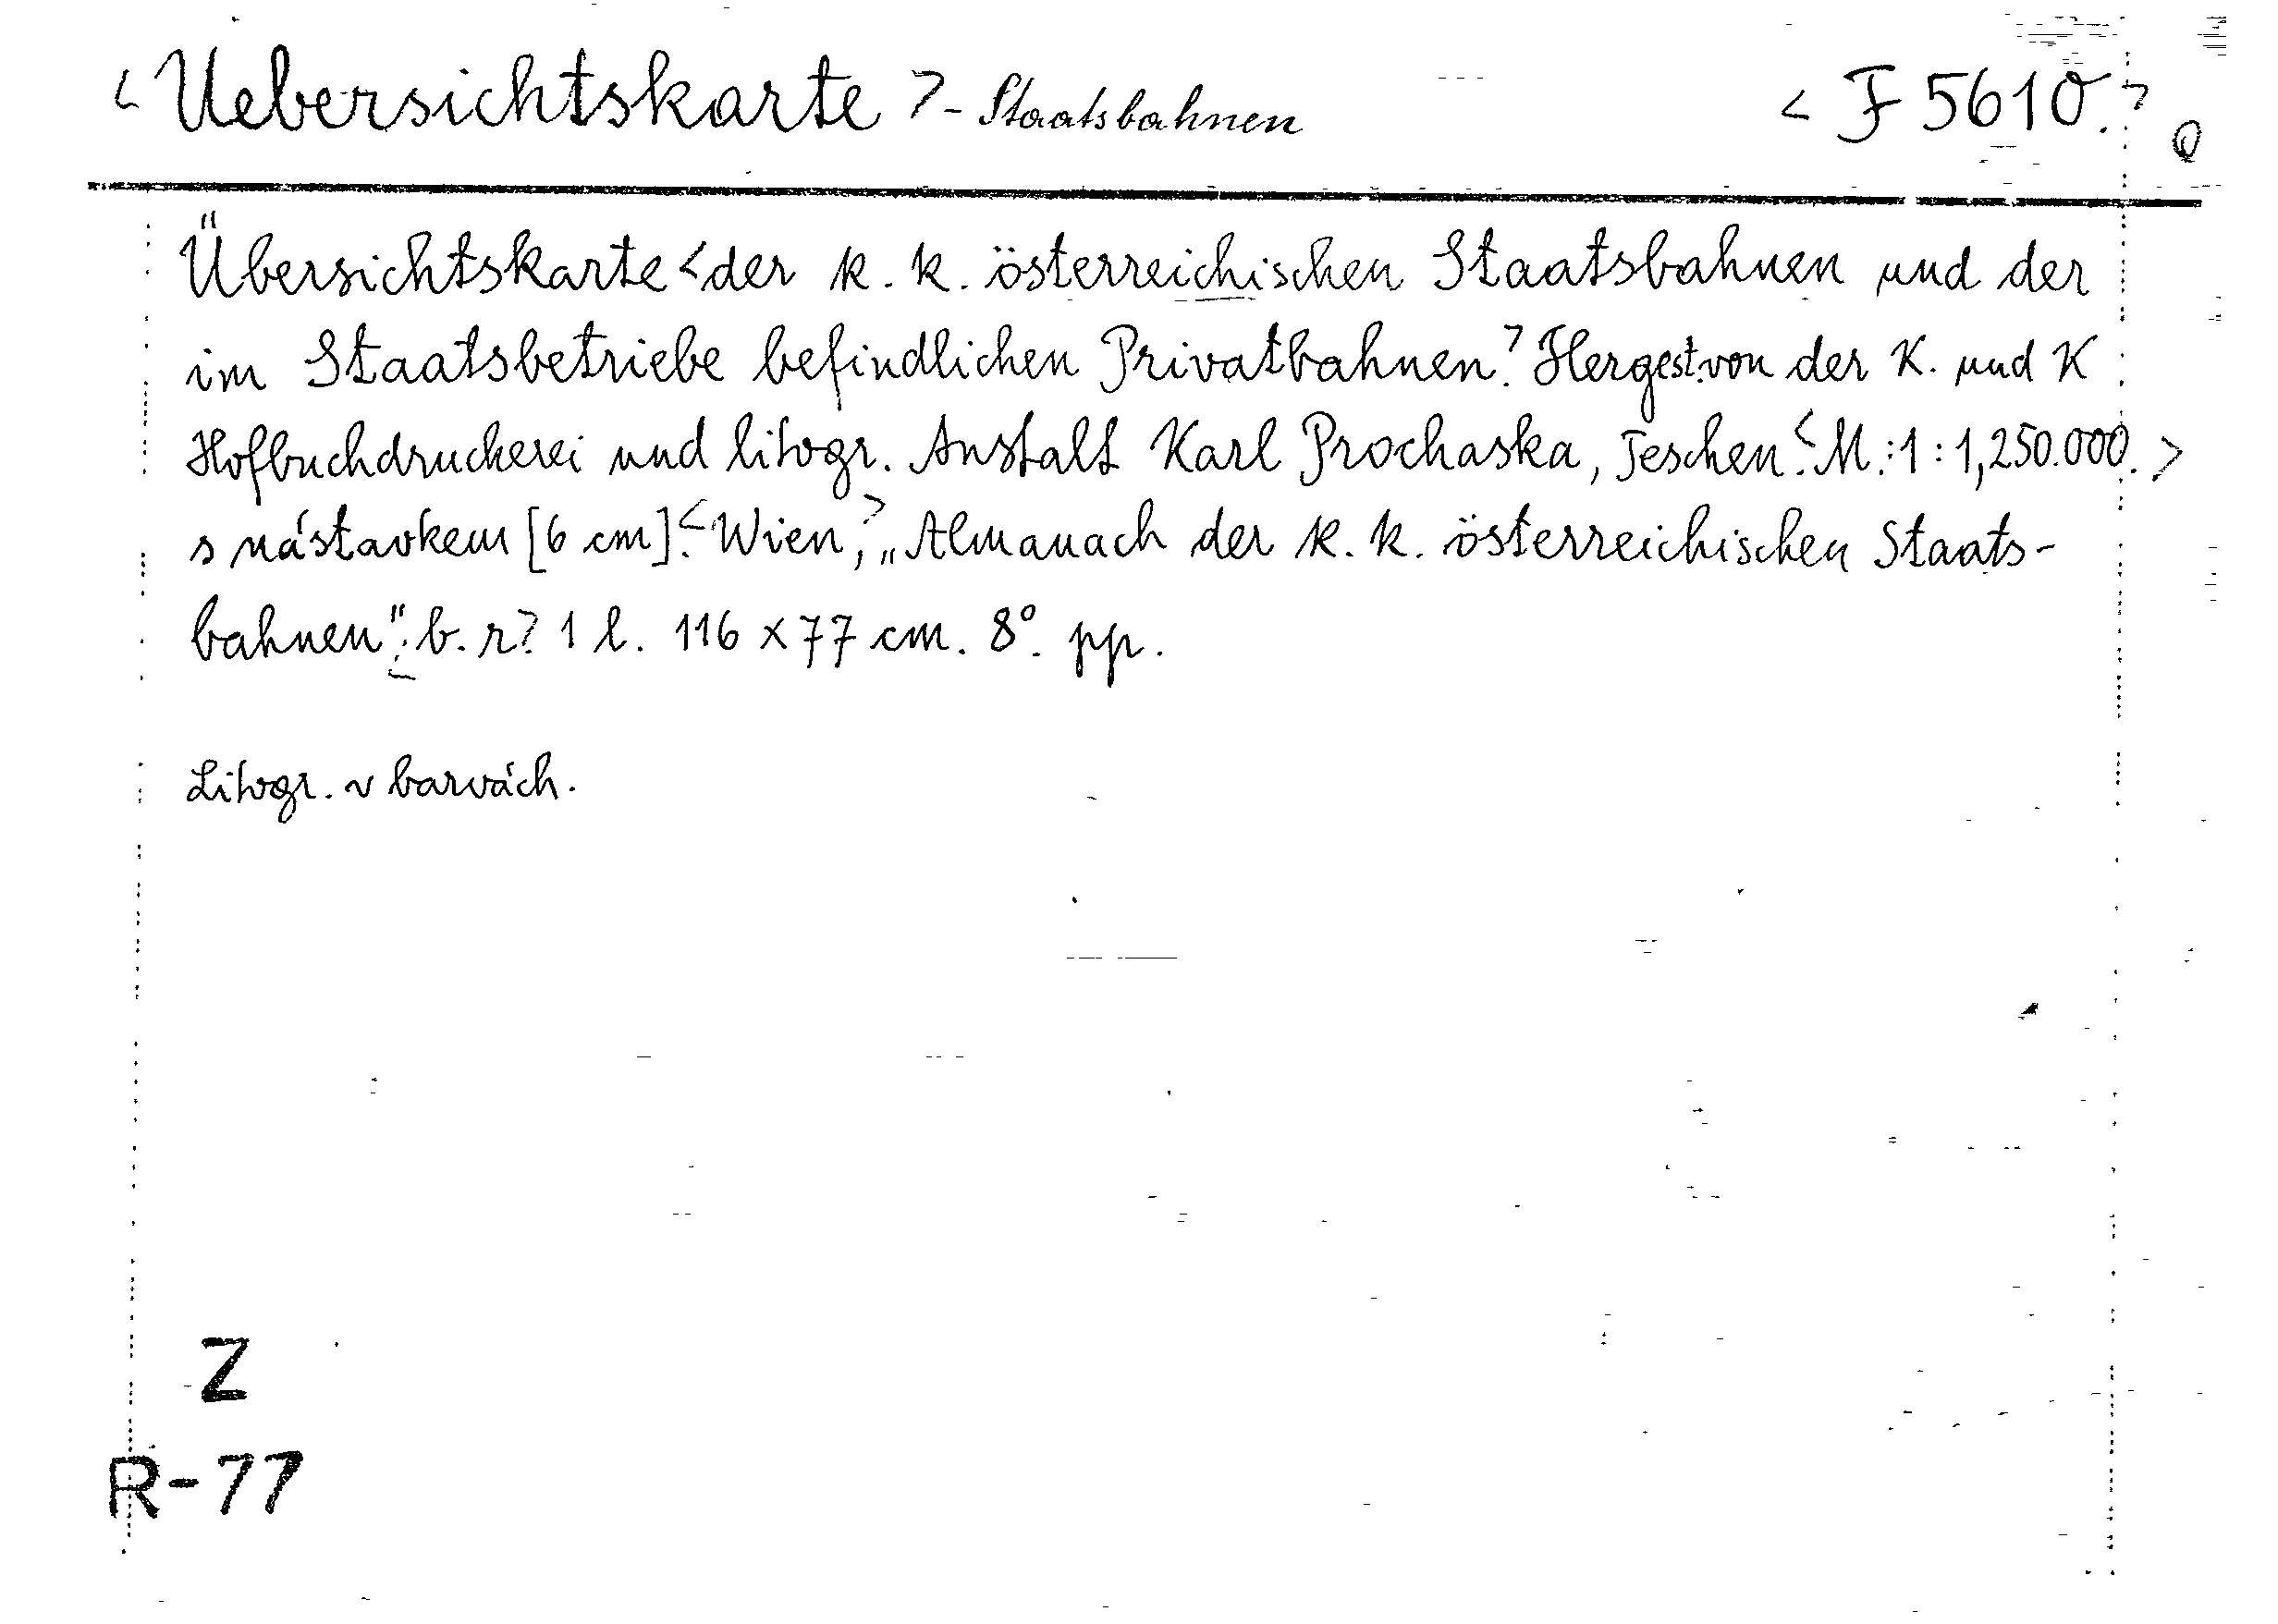 <Uebersichtskarte> - Staatsbahnen <F 5610.>
Übersichtskarte <der k. k. österreichischen Staatsbahnen und der
im Staatsbetriebe befindlichen Privatbahnen.> Hergest. von der K. und K
Hofbuchdruckerei und litogr. Anstalt Karl Prochaska, Teschen.<M.:1:1,250.000.>
s nástavkem [6 cm].<Wien,> „Almanach der k. k. österreichischen Staats-
bahnen". b. r.> 1 l. 116 x 77 cm. 8°. pp.
Litogr. v barvách.
Z
R-77